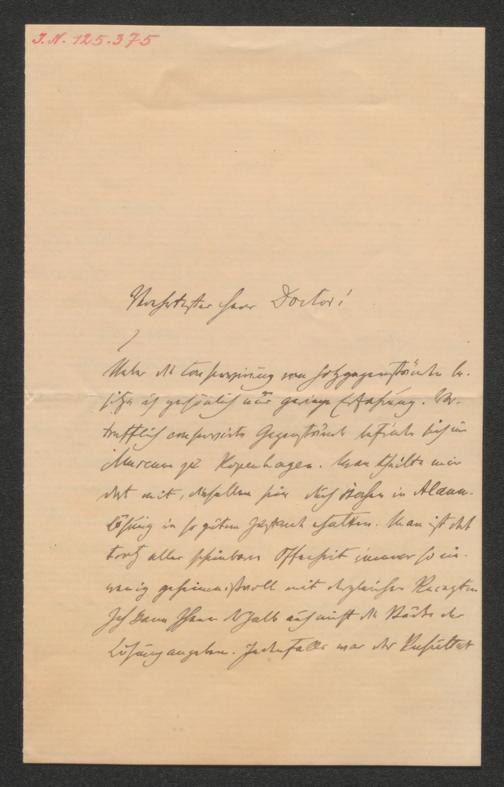 J.N. 125.375
Verehrtester Herr Doctor!
Ueber die Conservirung von Holzgegenständen be-
sitze ich persönlich nur geringe Erfahrung. Vor-
trefflich conservirte Gegenstände befinden sich im
Museum zu Kopenhagen. Man theilte mir
dort mit, dieselben seien durch Kochen in Alaun-
lösung in so gutem Zustand erhalten. Man ist dort
trotz aller scheinbaren Offenheit immer so ein
wenig geheimnißvoll mit dergleichen Recepten
Ich kann Ihnen deßhalb auch nicht die Stärke der
Lösung angeben. Jedenfalls war das Resultat